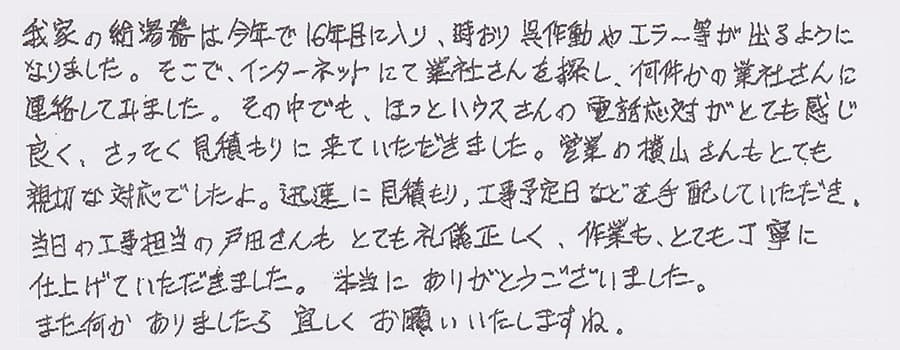 我家の給湯器は今年で16年目に入り、時おり呉作動やエラー等が出るように
なりました。そこで、インターネットにて業社さんを探し、何件かの業社さんに
連絡してみました。その中でも、ほっとハウスさんの電話応対がとても感じ
良く、さっそく見積もりに来ていただきました。営業の横山さんもとても
親切な対応でしたよ。迅速に見積もり、工事予定日などを手配していただき、
当日の工事担当の戸田さんもとても礼儀正しく、作業も、とても丁寧に
仕上げていただきました。本当にありがとうございました。
また何かありましたら宜しくお願いいたしますね。